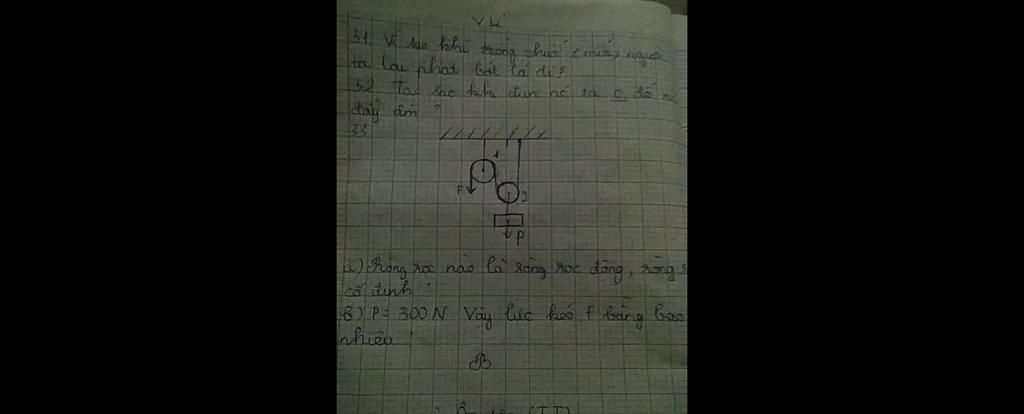 Vλί
31 Vì sao khi trồng chuối (mía) người
ta lại phạt bớt lá đi?
32 Tại sao khi đun nc ta o đổ
đầy ấm?
33
1
F
2
P
a) Ròng rọc nào là ròng rọc động, ròng
cố định?
B) P = 300 N Vậy lực kéo F bằng bao
nhiêu?
(TT)